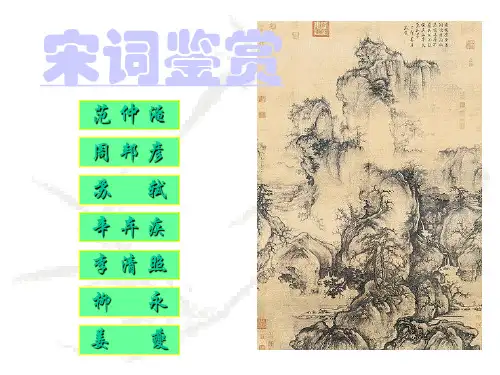 宋词鉴赏
范仲淹
周邦彦
苏轼
辛弃疾
李清照
柳永
姜夔